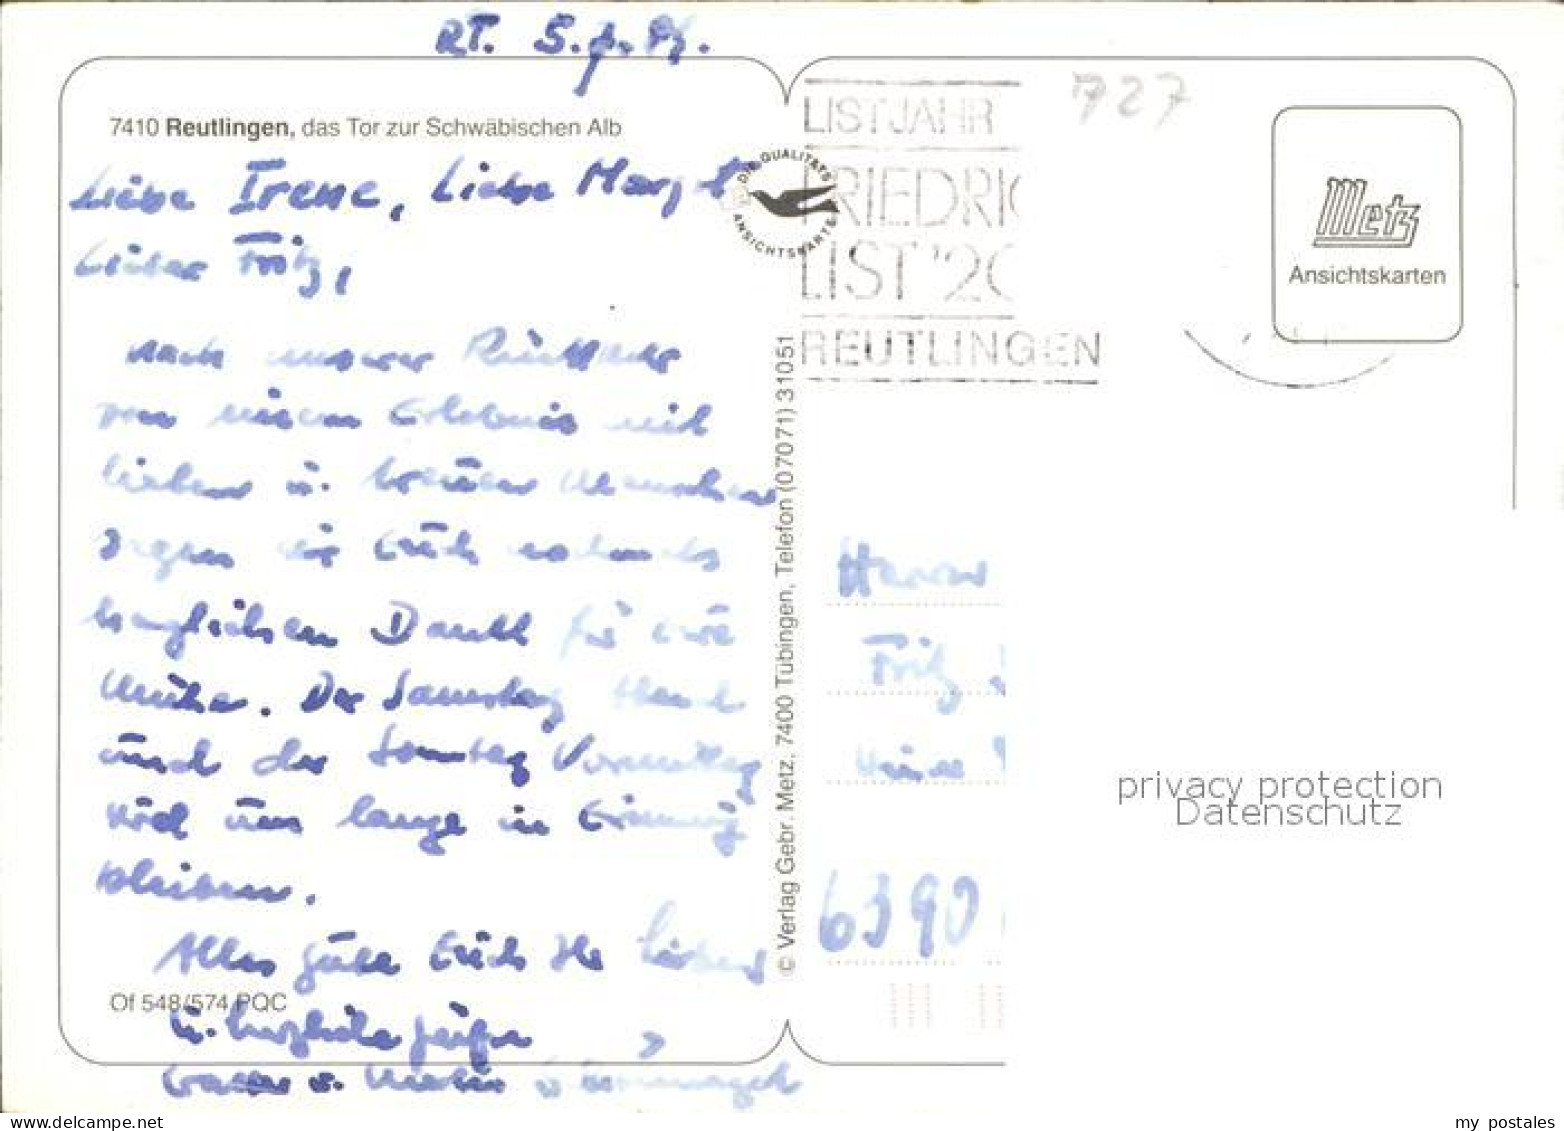 RT. 5.
727
LISTJAHR
FRIEDRIC
LIST '20
REUTLINGEN
7410 Reutlingen, das Tor zur Schwäbischen Alb
DIE QUALITÄTS
ANSICHTSKARTE
Metz
Ansichtskarten
Liebe Irene, Liebe Margot
Lieber Fritz,
nach unserer Rückkehr
von einem Erlebnis mit
lieben u. treuen Menschen
sagen wir Euch nochmals
herzlichen Dank für Eure
Mühe. Der Samstag Abend
und der Sonntag Vormittag
wird uns lange in
bleiben.
Alles gute Euch Ihr Lieben
u. herzliche
u.
© Verlag Gebr. Metz, 7400 Tübingen, Telefon (07071) 31051
Of 548/574 PQC
Herrn
Fritz
6390
privacy protection
Datenschutz
my postales